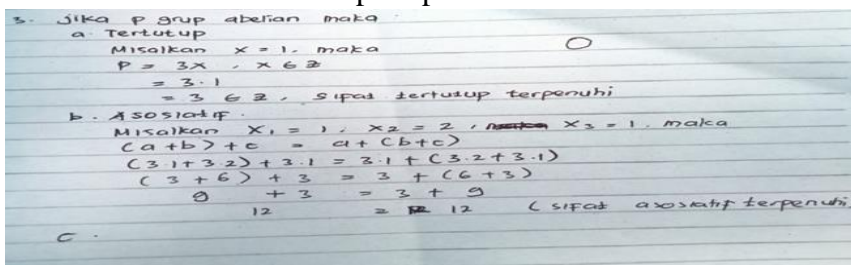 3. Jika P grup abelian maka
a Tertutup
Misalkan x = 1, maka
P = 3x , x ∈ Z
= 3.1
= 3 ∈ Z, sifat tertutup terpenuhi
b. Asosiatif.
Misalkan x1 = 1, x2 = 2, x3 = 1. maka
(a+b)+c = a+(b+c)
(3.1+3.2)+3.1 = 3.1+(3.2+3.1)
(3+6)+3 = 3+(6+3)
9 +3 = 3+9
12 = 12 (sifat asosiatif terpenuhi
c.